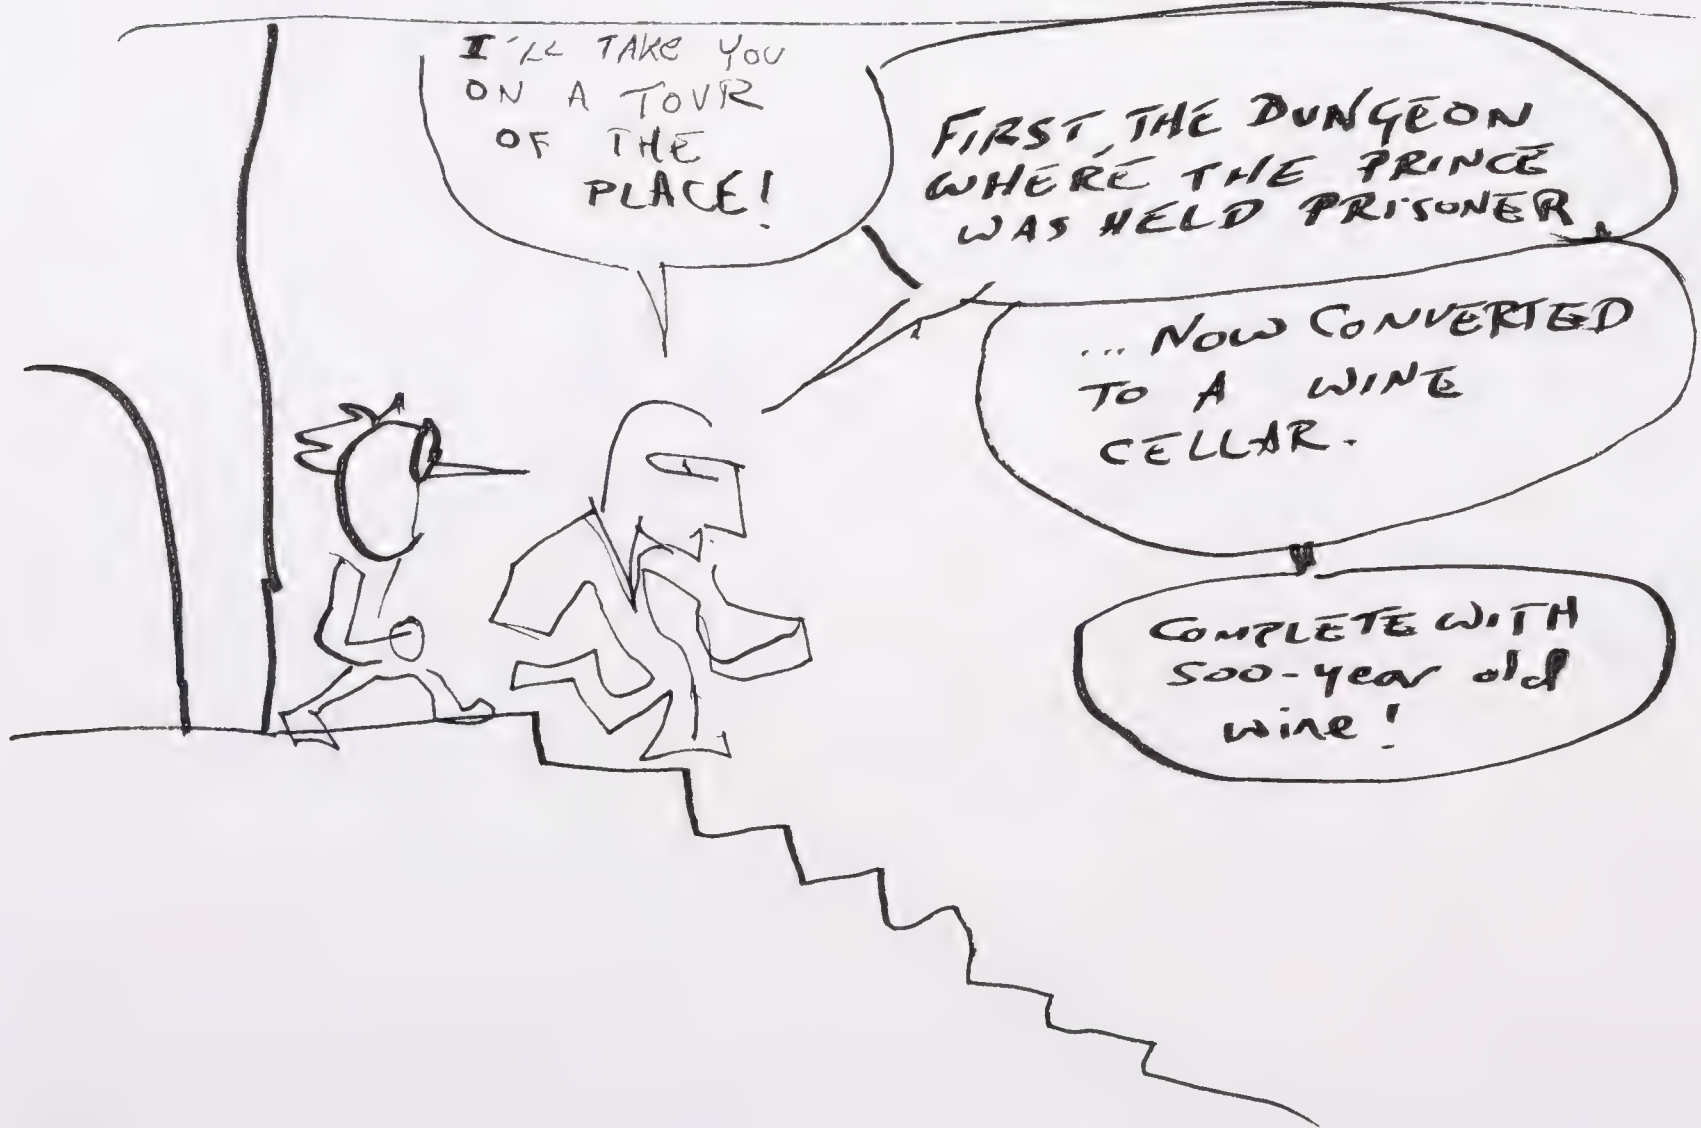 I'LL TAKE YOU
ON A TOUR
OF THE
PLACE!
FIRST, THE DUNGEON
WHERE THE PRINCE
WAS HELD PRISONER
... NOW CONVERTED
TO A WINE
CELLAR.
COMPLETE WITH
500-year old
wine!